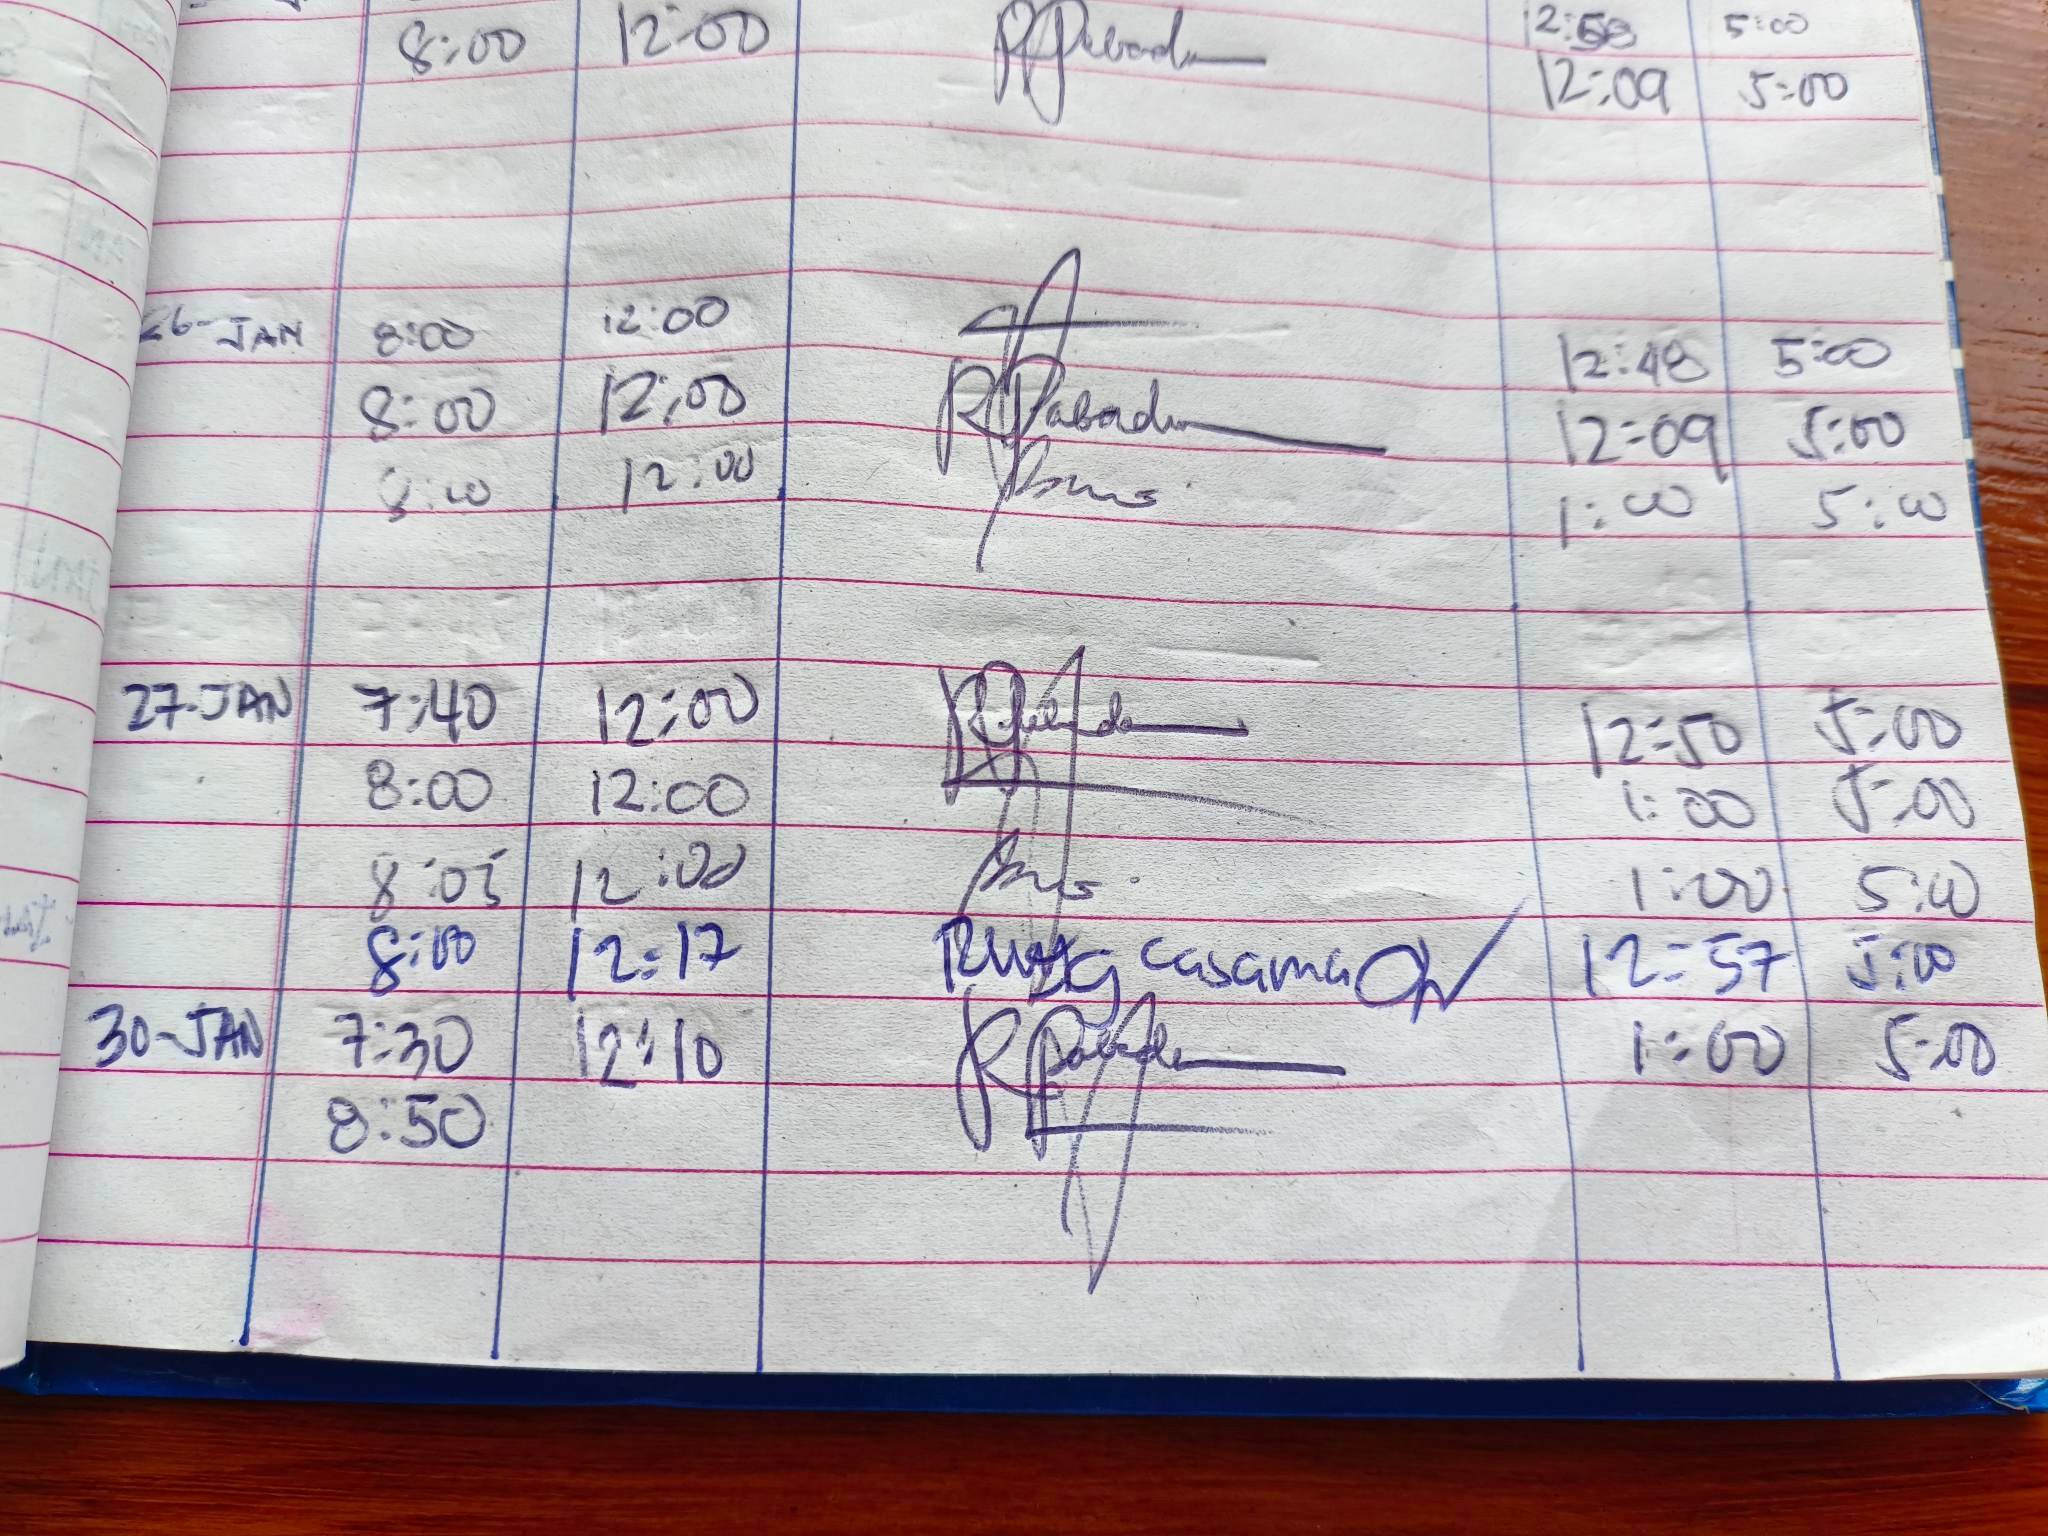 12:58 5:00
8:00 12:00 12:09 5:00
26-JAN 8:00 12:00 12:48 5:00
8:00 12:00 12:09 5:00
8:00 12:00 1:00 5:00
27-JAN 7:40 12:00 12:50 5:00
8:00 12:00 1:00 5:00
8:05 12:00 1:00 5:00
8:00 12:17 casama 12:57 5:00
30-JAN 7:30 12:10 1:00 5:00
8:50